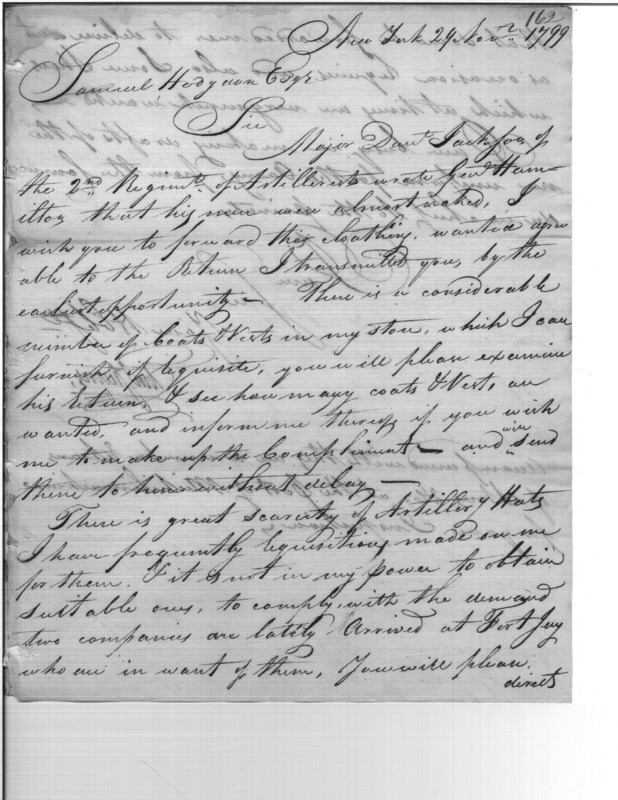 162
New York 29 Novr. 1799
Samuel Hodgdon Esqr
Sir
Major Danl. Jackson of
the 2nd Regmt. of Artillerists wrote Genl. Ham-
ilton that his men were almost naked, I
wish you to forward this cloathing, wanted agre
able to the Return I transmitted you, by the
earliest oppertunity — There is a considerable
number of Coats & Vests in my store, which I can
furnish if requisite, you will please examine
his Return, & see how many coats & Vests, are
wanted, and inform me thereof if you wish
me to make up the Compliment — and will send
them to him without delay —
There is great scarcity of Artillery Hats
I have frequently requisitions made on me
for them. & it is not in my power to obtain
suitable ones, to comply with the demand
two companies are latily Arrived at Fort Jay
who are in want of them, You will please
directs